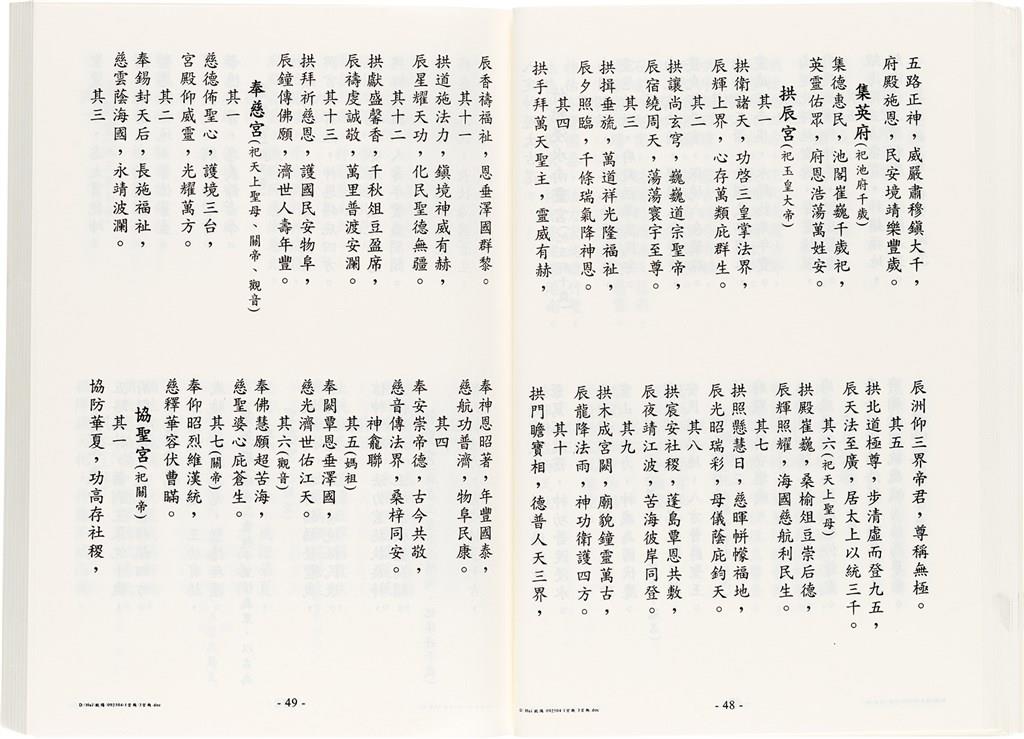 五路正神，威嚴肅穆鎮大千，
府殿施恩，民安境靖樂豐歲。
集英府(祀池府千歲)
集德惠民，池閣崔巍千歲祀，
英靈佑眾，府恩浩蕩萬姓安。
拱辰宮(祀玉皇大帝)
其一
拱衛諸天，功啓三皇掌法界，
辰輝上界，心存萬類庇群生。
其二
拱讓尚玄穹，巍巍道宗聖帝，
辰宿繞周天，蕩蕩寰宇至尊。
其三
拱揖垂旒，萬道祥光隆福祉，
辰夕照臨，千條瑞氣降神恩。
其四
拱手拜萬天聖主，靈威有赫，
辰洲仰三界帝君，尊稱無極。
其五
拱北道極尊，步清虛而登九五，
辰天法至廣，居太上以統三千。
其六(祀天上聖母)
拱殿崔巍，桑榆俎豆崇后德，
辰輝照耀，海國慈航利民生。
其七
拱照懸慧日，慈暉帡幪福地，
辰光昭瑞彩，母儀蔭庇鈞天。
其八
拱宸安社稷，蓬島覃恩共敷，
辰夜靖江波，苦海彼岸同登。
其九
拱木成宮闕，廟貌鐘靈萬古，
辰龍降法雨，神功衛護四方。
其十
拱門瞻寶相，德普人天三界，
- 48 -
辰香禱福祉，恩垂澤國群黎。
其十一
拱道施法力，鎮境神威有赫，
辰星耀天功，化民聖德無疆。
其十二
拱獻盛馨香，千秋俎豆盈席，
辰禱虔誠敬，萬里普渡安瀾。
其十三
拱拜祈慈恩，護國民安物阜，
辰鐘傳佛願，濟世人壽年豐。
奉慈宮(祀天上聖母、關帝、觀音)
其一
慈德佈聖心，護境三台，
宮殿仰威靈，光耀萬方。
其二
奉錫封天后，長施福祉，
慈雲蔭海國，永靖波瀾。
其三
奉神恩昭著，年豐國泰，
慈航功普濟，物阜民康。
其四
奉安崇帝德，古今共敬，
慈音傳法界，桑梓同安。
神龕聯
其五(媽祖)
奉闕覃恩垂澤國，
慈光濟世佑江天。
其六(觀音)
奉佛慧願超苦海，
慈聖婆心庇蒼生。
其七(關帝)
奉仰昭烈維漢統，
慈釋華容伏曹瞞。
協聖宮(祀關帝)
其一
協防華夏，功高存社稷，
- 49 -